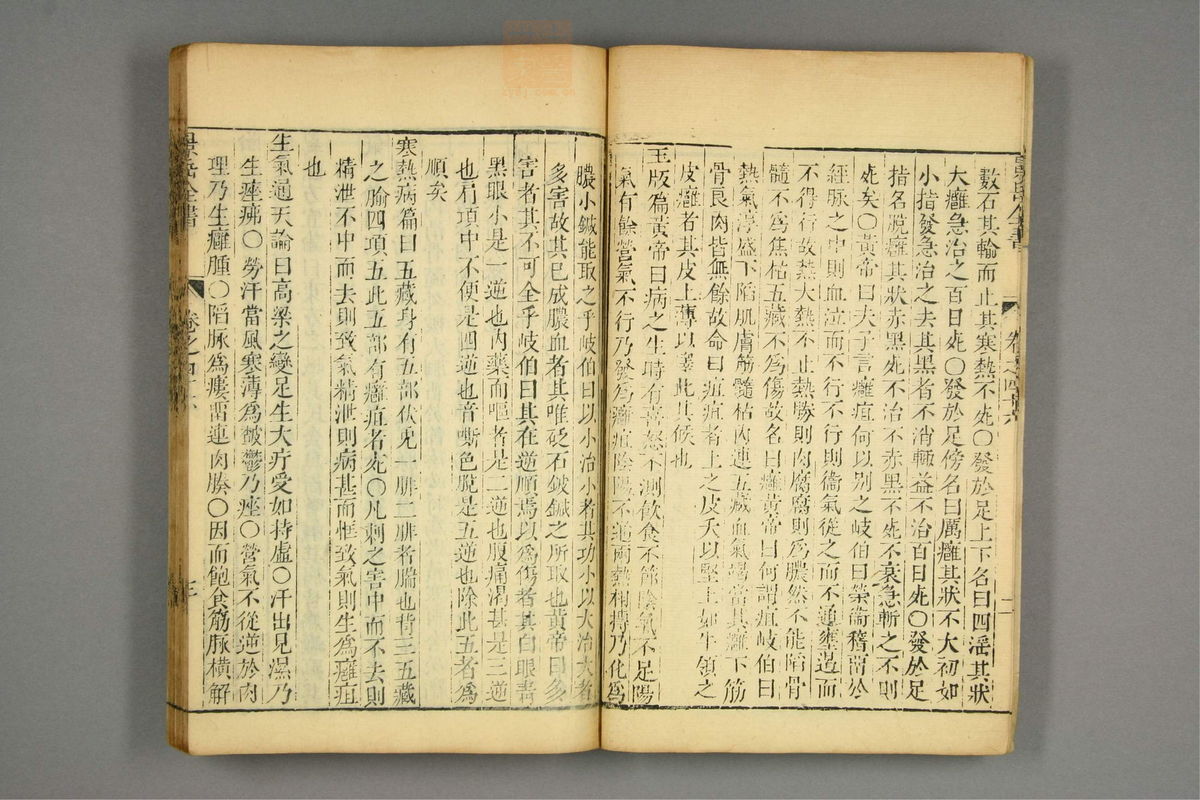 數石其輸而止其寒熱不死○發於足上下名曰四淫其狀
大癰急治之百日死○發於足傍名曰厲癰其狀不大初如
小指發急治之去其黑者不消輒益不治百日死○發於足
指名脫癰其狀赤黑死不治不赤黑不死不衰急斬之不則
死矣○黃帝曰夫子言癰疽何以別之岐伯曰榮衞稽留於
經脉之中則血泣而不行不行則衞氣從之而不通壅遏而
不得行故熱大熱不止熱勝則肉腐腐則爲膿然不能陷骨
髓不爲焦枯五藏不爲傷故名曰癰黃帝曰何謂疽岐伯曰
熱氣淳盛下陷肌膚筋髓枯內連五藏血氣竭當其癰下筋
骨良肉皆無餘故命曰疽疽者上之皮夭以堅上如牛領之
皮癰者其皮上薄以澤此其候也
玉版篇黃帝曰病之生時有喜怒不測飲食不節陰氣不足陽
氣有餘營氣不行乃發爲癰疽陰陽不通兩熱相搏乃化爲
膿小鍼能取之乎岐伯曰以小治小者其功小以大治大者
多害故其已成膿血者其唯砭石鈹鍼之所取也黃帝曰多
害者其不可全乎岐伯曰其在逆順焉以爲傷者其白眼青
黑眼小是一逆也內藥而嘔者是二逆也腹痛渴甚是三逆
也肩項中不便是四逆也音嘶色脫是五逆也除此五者爲
順矣
寒熱病篇曰五藏身有五部伏兎一腓二腓者腨也背三五藏
之腧四項五此五部有癰疽者死○凡刺之害中而不去則
精泄不中而去則致氣精泄則病甚而恇致氣則生爲癰疽
也
生氣通天論曰高梁之變足生大疔受如持虛○汗出見濕乃
生痤疿○勞汗當風寒薄爲皶鬱乃痤○營氣不從逆於肉
理乃生癰腫○陷脉爲瘻畱連肉腠○因而飽食筋脉橫解
景岳全書
卷之四十六
三